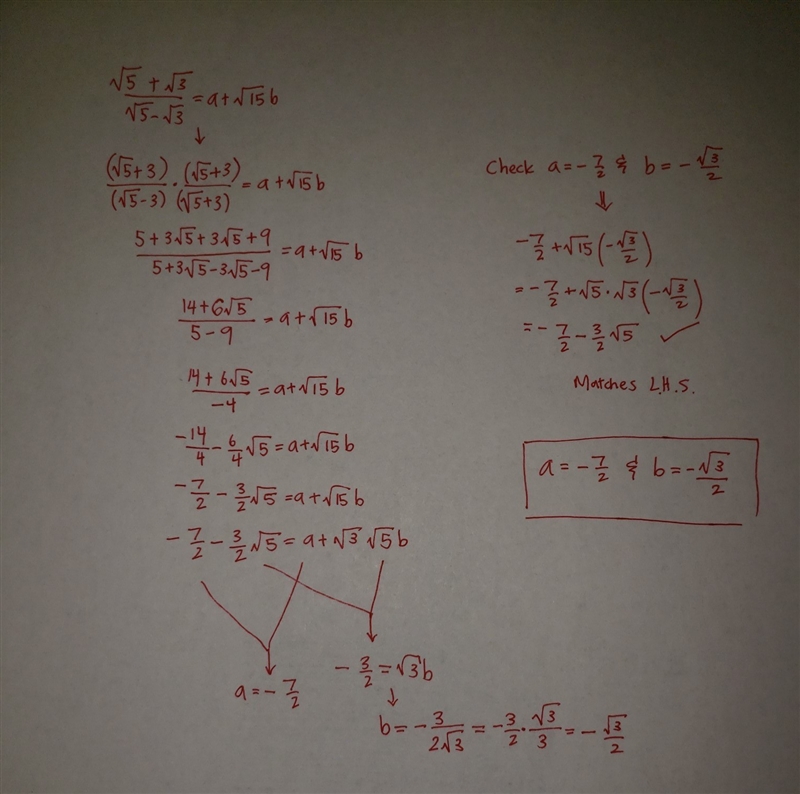 (√5 + √3)/(√5 - √3) = a + √15 b
↓
((√5+3)/(√5-3)) · ((√5+3)/(√5+3)) = a + √15 b
(5 + 3√5 + 3√5 + 9)/(5 + 3√5 - 3√5 - 9) = a + √15 b
(14 + 6√5)/(5 - 9) = a + √15 b
(14 + 6√5)/(-4) = a + √15 b
-14/4 - 6/4 √5 = a + √15 b
-7/2 - 3/2 √5 = a + √15 b
-7/2 - 3/2 √5 = a + √3 √5 b
a = -7/2
-3/2 = √3 b
↓
b = -3/(2√3) = -3/2 · √3/3 = -√3/2
Check a = -7/2 & b = -√3/2
⇓
-7/2 + √15 (-√3/2)
= -7/2 + √5 · √3 (-√3/2)
= -7/2 - 3/2 √5 ✓
Matches L.H.S.
a = -7/2 & b = -√3/2